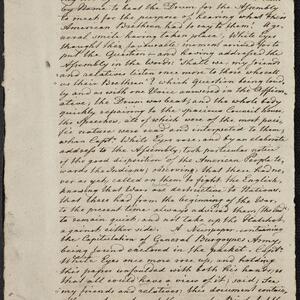 by Name to beat the Drum for the Assembly
to meet for the purpose of hearing what their
American Brethren had to say to them. A ge-
neral smile having taken place, White Eyes
thought that favourable moment arrived for to
put the Question and having addressed the
Assembly in the Words: Shall we, my friends
and relatives listen once more to those who call
us their Brethren? which Question being loud-
ly and as with one Voice answered in the Affirm-
ative, the Drum was beat, and the whole body
quickly repairing to the spacious Council house,
the Speeches, all of which were of the most paci-
fic nature were read and interpreted to them,
when Captn. White Eyes rose, and by an elaborate
address to the Assembly, took particular notice
of the good disposition of the American People to-
wards the Indians; observing, that these had ne-
ver as yet, called on them to fight the English,
knowing that Wars are destructive to Nations.
that these had from the beginning of the War,
to the present time always advised them, (the Inds.)
to remain quiet, and not take up the Hatchet
against either side. A Newspaper, containing
the Capitulation of General Burgoynes Army,
being found enclosed in the packet, Captn.
White Eyes once more rose up, and holding
this paper unfolded with both his Hands, so
that all could have a view of it, said,
my friends and relatives! this document contain